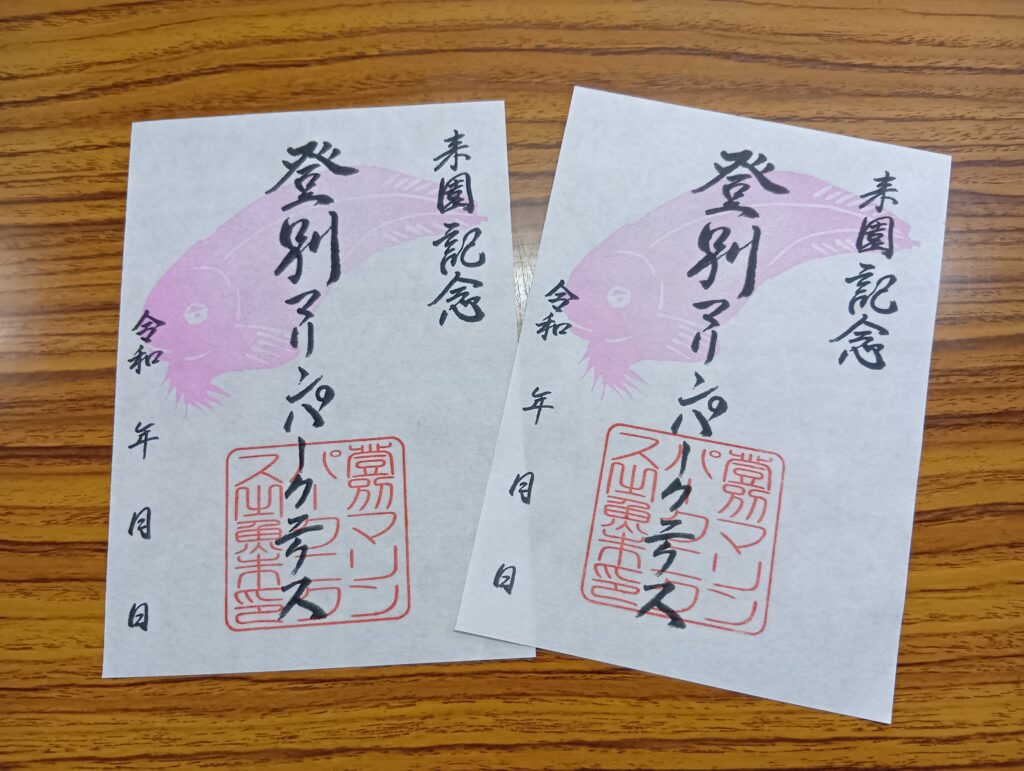 来園記念
登別マリンパークニクス
令和 年 月 日
登別マリン
パークニク
ス之魚朱印
来園記念
登別マリンパークニクス
令和 年 月 日
登別マリン
パークニク
ス之魚朱印